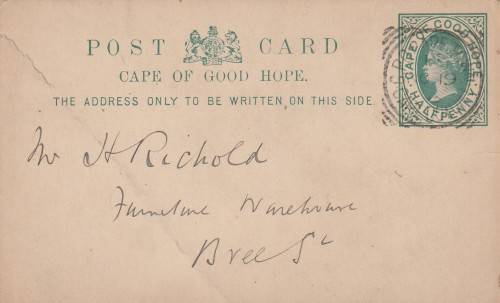 POST CARD
CAPE OF GOOD HOPE.
THE ADDRESS ONLY TO BE WRITTEN ON THIS SIDE.
CAPE OF GOOD HOPE
HALFPENNY
Mr H Richold
Furniture Warehouse
Bree St